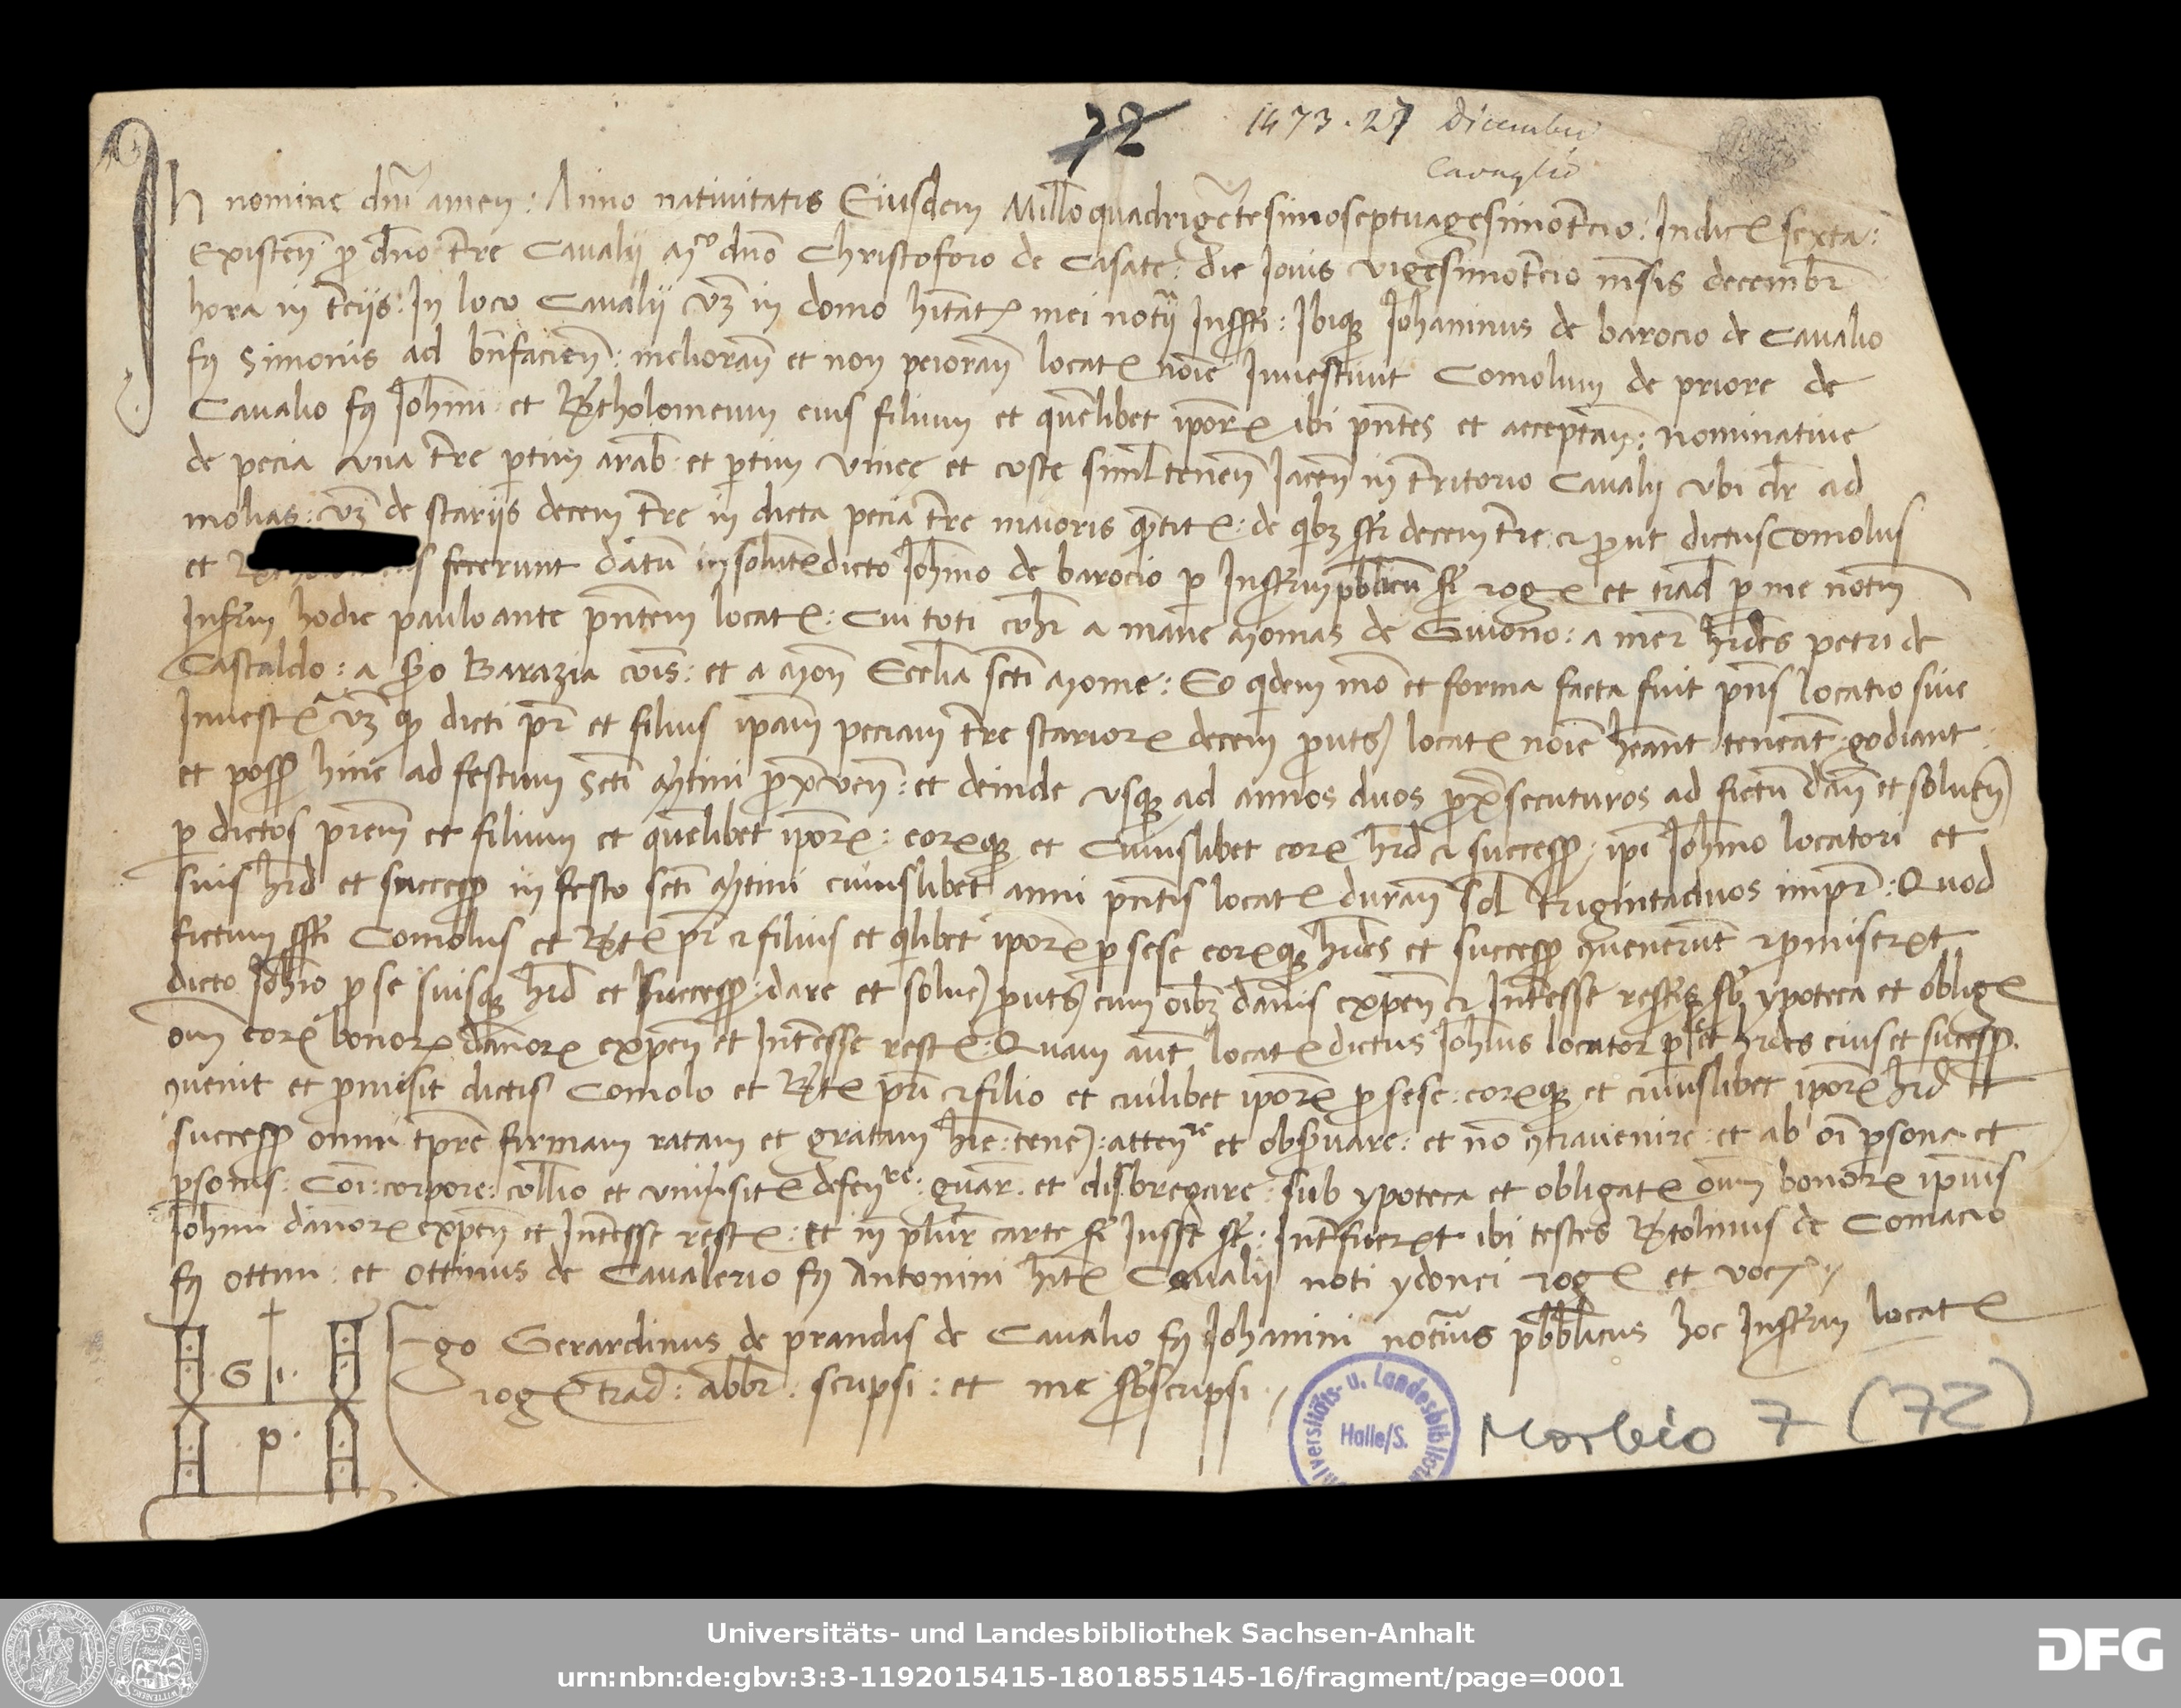 72
1473 . 27 Dicembre
Cavaglio
In nomine dnī amen : Anno nativitatis Eiusdem Millo quadrigētesimoseptuagesimotercio : Indicē sexta :
Existeñ p dn̄o tr̄re Cavalij dn̄o Christoforo de Casate : die Iovis vigesimot̄cio mēsis decembr
hora in t̄cijs : In loco Cavalij vz in domo hītatē mei notīj Infrascpti : Ibiqz Iohaninus de barocio de Cavalio
fq Simonis ad bn̄facieñ : melioram̄ et non peioram̄ locatē noīe Investivit Comolum de priore de
Cavalio fq Ioh̄ini et Br̄tholomeum eius filium et quēlibet ipoꝝ ibi pn̄tes et acceptañ : nominative
de pecia una tr̄re ptim arab et ptim vinee et coste siml̄ teneñ Iaceñ in tr̄ritorio Cavalij ubi dr̄ ad
molias : vz de starijs decem tr̄re in dicta pecia tr̄re maioris q̄ntitē : de qibz st̄r decem tr̄re et put dictus Comolus
et fecerunt datū in solutē dicto Ioh̄ino de barocio p Instrm pbblicū fr̄ rogē et trad p me notm̄
Infrm hodie pauloante pn̄tem locatē : Cui toti coh̄r a mane Momas de Guiono : a mēr hr̄des petri de
Castaldo : a s̄ro Barazia coīs : et a moñ Eccl̄ia scti Mome : Eo q̄dem mō et forma facta fuit pn̄s locatio sive
Investē vz qz dicti pr̄ et filius ipam peciam tr̄re starioꝝ decem puts locatē noīe heānt teneāt godiant
et poss̄ hinc ad festum Scti Mr̄tini prox veñ : et deinde usqz ad annos duos pxē secuturos ad fictū dañ et soluēñ
p dictos prem̄ et filium et quēlibet ipoꝝ : eoꝝqz et Cuiuslibet eoꝝ hr̄d et success̄ ipī Ioh̄ino locatori et
suis hr̄d et success̄ in festo scti Mr̄tini cuiuslibet anni pn̄tis locatē durañ sol̄ trigintaduos impr̄ : Quod
fictum sst̄i Comolus et Br̄tē pr̄ et filius et qlibet ipoꝝ p sese eoꝝqz hr̄des et success̄ ꝯvenerūt et pmiserūt
dicto Ioh̄io p se suisqz hr̄d et success̄ : dare et solvē puts cum oībz dānis expeñ et Intēsse restis sb ypoteca et obligē
om̄ eoꝝ bonoꝝ dānoꝝ expeñ et Intēsse restē : Quam aūt locatē dictus Ioh̄ius locator p se et hr̄des eius et sucess̄
ꝯvenit et pmisit dictis Comolo et Br̄tē pri et filio et cuilibet ipoꝝ p sese : eoꝝqz et cuiuslibet ipoꝝ hr̄d et
success̄ omni tpre firmam ratam et gratam hr̄e : tenē : atteñre et obsrvare : et nō ꝯtravenire : et ab oī psona et
psonis : Coi : corpore : coll̄io et univsitē defeñre : guar : et disbregare : sub ypoteca et obligatē oīm bonoꝝ ipius
Ioh̄ini dānoꝝ expeñ et Intēsse restē : et in plur carte fr̄ Iusst st̄ : Intfuerūt ibi testes Br̄tolinus de Comacio
fq ottini : et ottinus de Cavalerio fq Antonini hītē Cavalij noti ydonei rogē et vocē
Ego Gerardinus de prandis de Cavalio fq Iohanini notīus pbblicus hoc Instrm locatē
rogē trad : abbr : scripsi : et me sbscripsi
G I
p
Universitäts- u. Landesbibliothek
Halle/S.
Morbio 7 (72)
Universitäts- und Landesbibliothek Sachsen-Anhalt
urn:nbn:de:gbv:3:3-1192015415-1801855145-16/fragment/page=0001
DFG